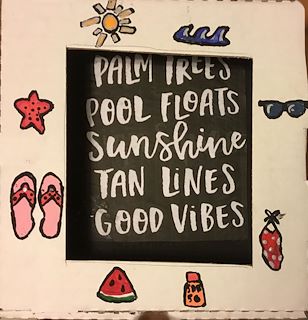 PALM TREES
POOL FLOATS
Sunshine
TAN LINES
GOOD VIBES
SPF
50